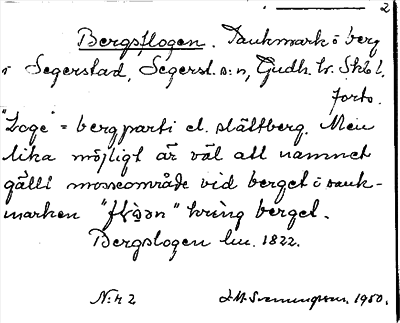 2
Bergslogen. Saukmark i berg
i Segerstad, Segerst. s:n, Gudh. hr. Skbl.
forts.
"Loge" = bergparti el. slättberg. Men
lika möjligt är väl att namnet
gällt mosseområde vid berget i sauk-
marken kring berget.
Bergslogen lm. 1822.
N:r 2 1950.